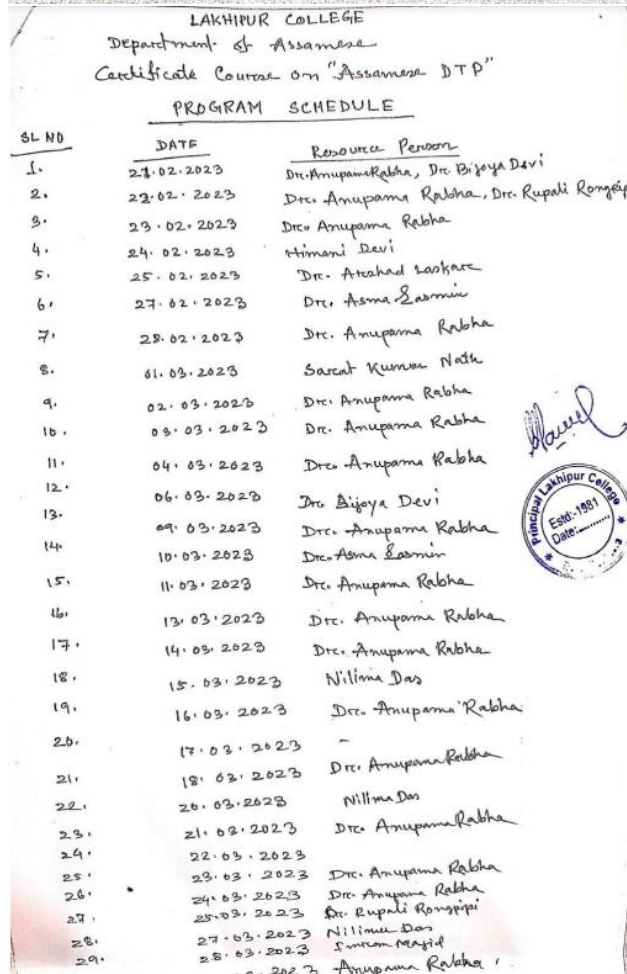 LAKHIPUR COLLEGE
Department of Assamese
Certificate Course on "Assamese DTP"
PROGRAM SCHEDULE
SL NO DATE Resource Person
1. 21.02.2023 Dr. Anupama Rabha, Dr. Bijoya Devi
2. 22.02.2023 Dr. Anupama Rabha, Dr. Rupali Rongpipi
3. 23.02.2023 Dr. Anupama Rabha
4. 24.02.2023 Himani Devi
5. 25.02.2023 Dr. Arshad Laskar
6. 27.02.2023 Dr. Asma
7. 28.02.2023 Dr. Anupama Rabha
8. 01.03.2023 Sarat Kumar Nath
9. 02.03.2023 Dr. Anupama Rabha
10. 03.03.2023 Dr. Anupama Rabha
11. 04.03.2023 Dr. Anupama Rabha
12. 06.03.2023 Dr. Bijoya Devi
13. 09.03.2023 Dr. Anupama Rabha
14. 10.03.2023 Dr. Asma
15. 11.03.2023 Dr. Anupama Rabha
16. 13.03.2023 Dr. Anupama Rabha
17. 14.03.2023 Dr. Anupama Rabha
18. 15.03.2023 Nilima Das
19. 16.03.2023 Dr. Anupama Rabha
20. 17.03.2023 -
21. 18.03.2023 Dr. Anupama Rabha
22. 20.03.2023 Nilima Das
23. 21.03.2023 Dr. Anupama Rabha
24. 22.03.2023
25. 23.03.2023 Dr. Anupama Rabha
26. 24.03.2023 Dr. Anupama Rabha
27. 25.03.2023 Dr. Rupali Rongpipi
28. 27.03.2023 Nilima Das
29. 28.03.2023 Majid
2023 Anupama Rabha
Principal Lakhipur College
Estd:-1981
Date: